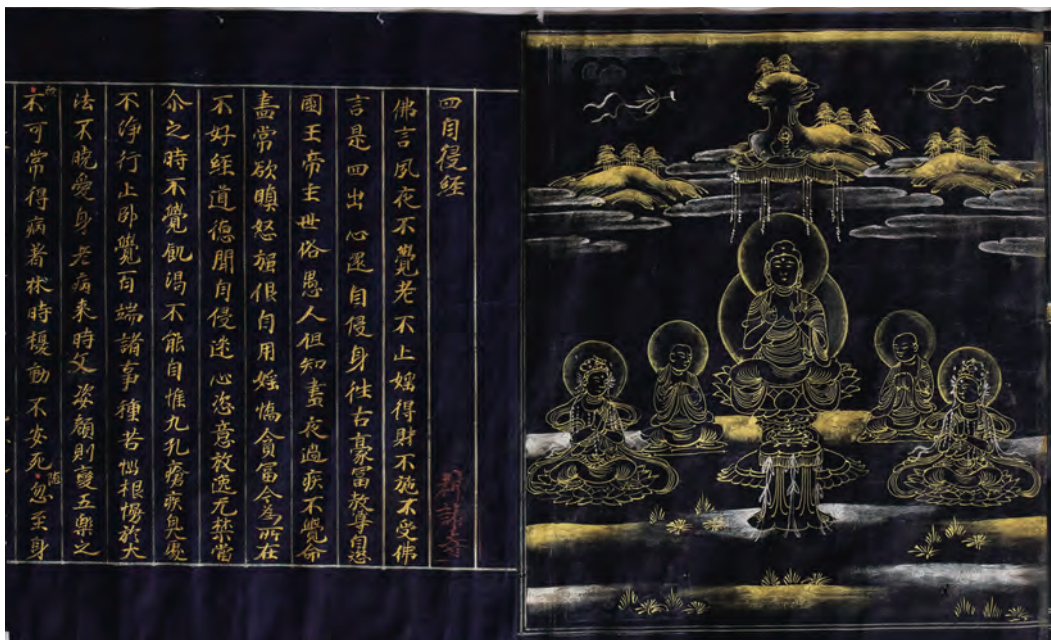 四自侵経
神護寺
佛言夙夜不覺老不止婬得財不施不受佛
言是四出心還自侵身往古豪冨教尊自恣
國王帝主世俗愚人但知晝夜過疾不覺命
盡常欲瞋怒强佷自用婬憍貪冨今為所在
不好經道德聞自侵迷心恣意放逸无禁當
尒之時不覺飢渴不能自惟九孔瘡疾臰處
不淨行止卧覺百端諸事種苦惱根慢於大
法不曉愛身老病来時姿顏則變五樂之
不可常得病著牀時櫌動不安死忽至身
随